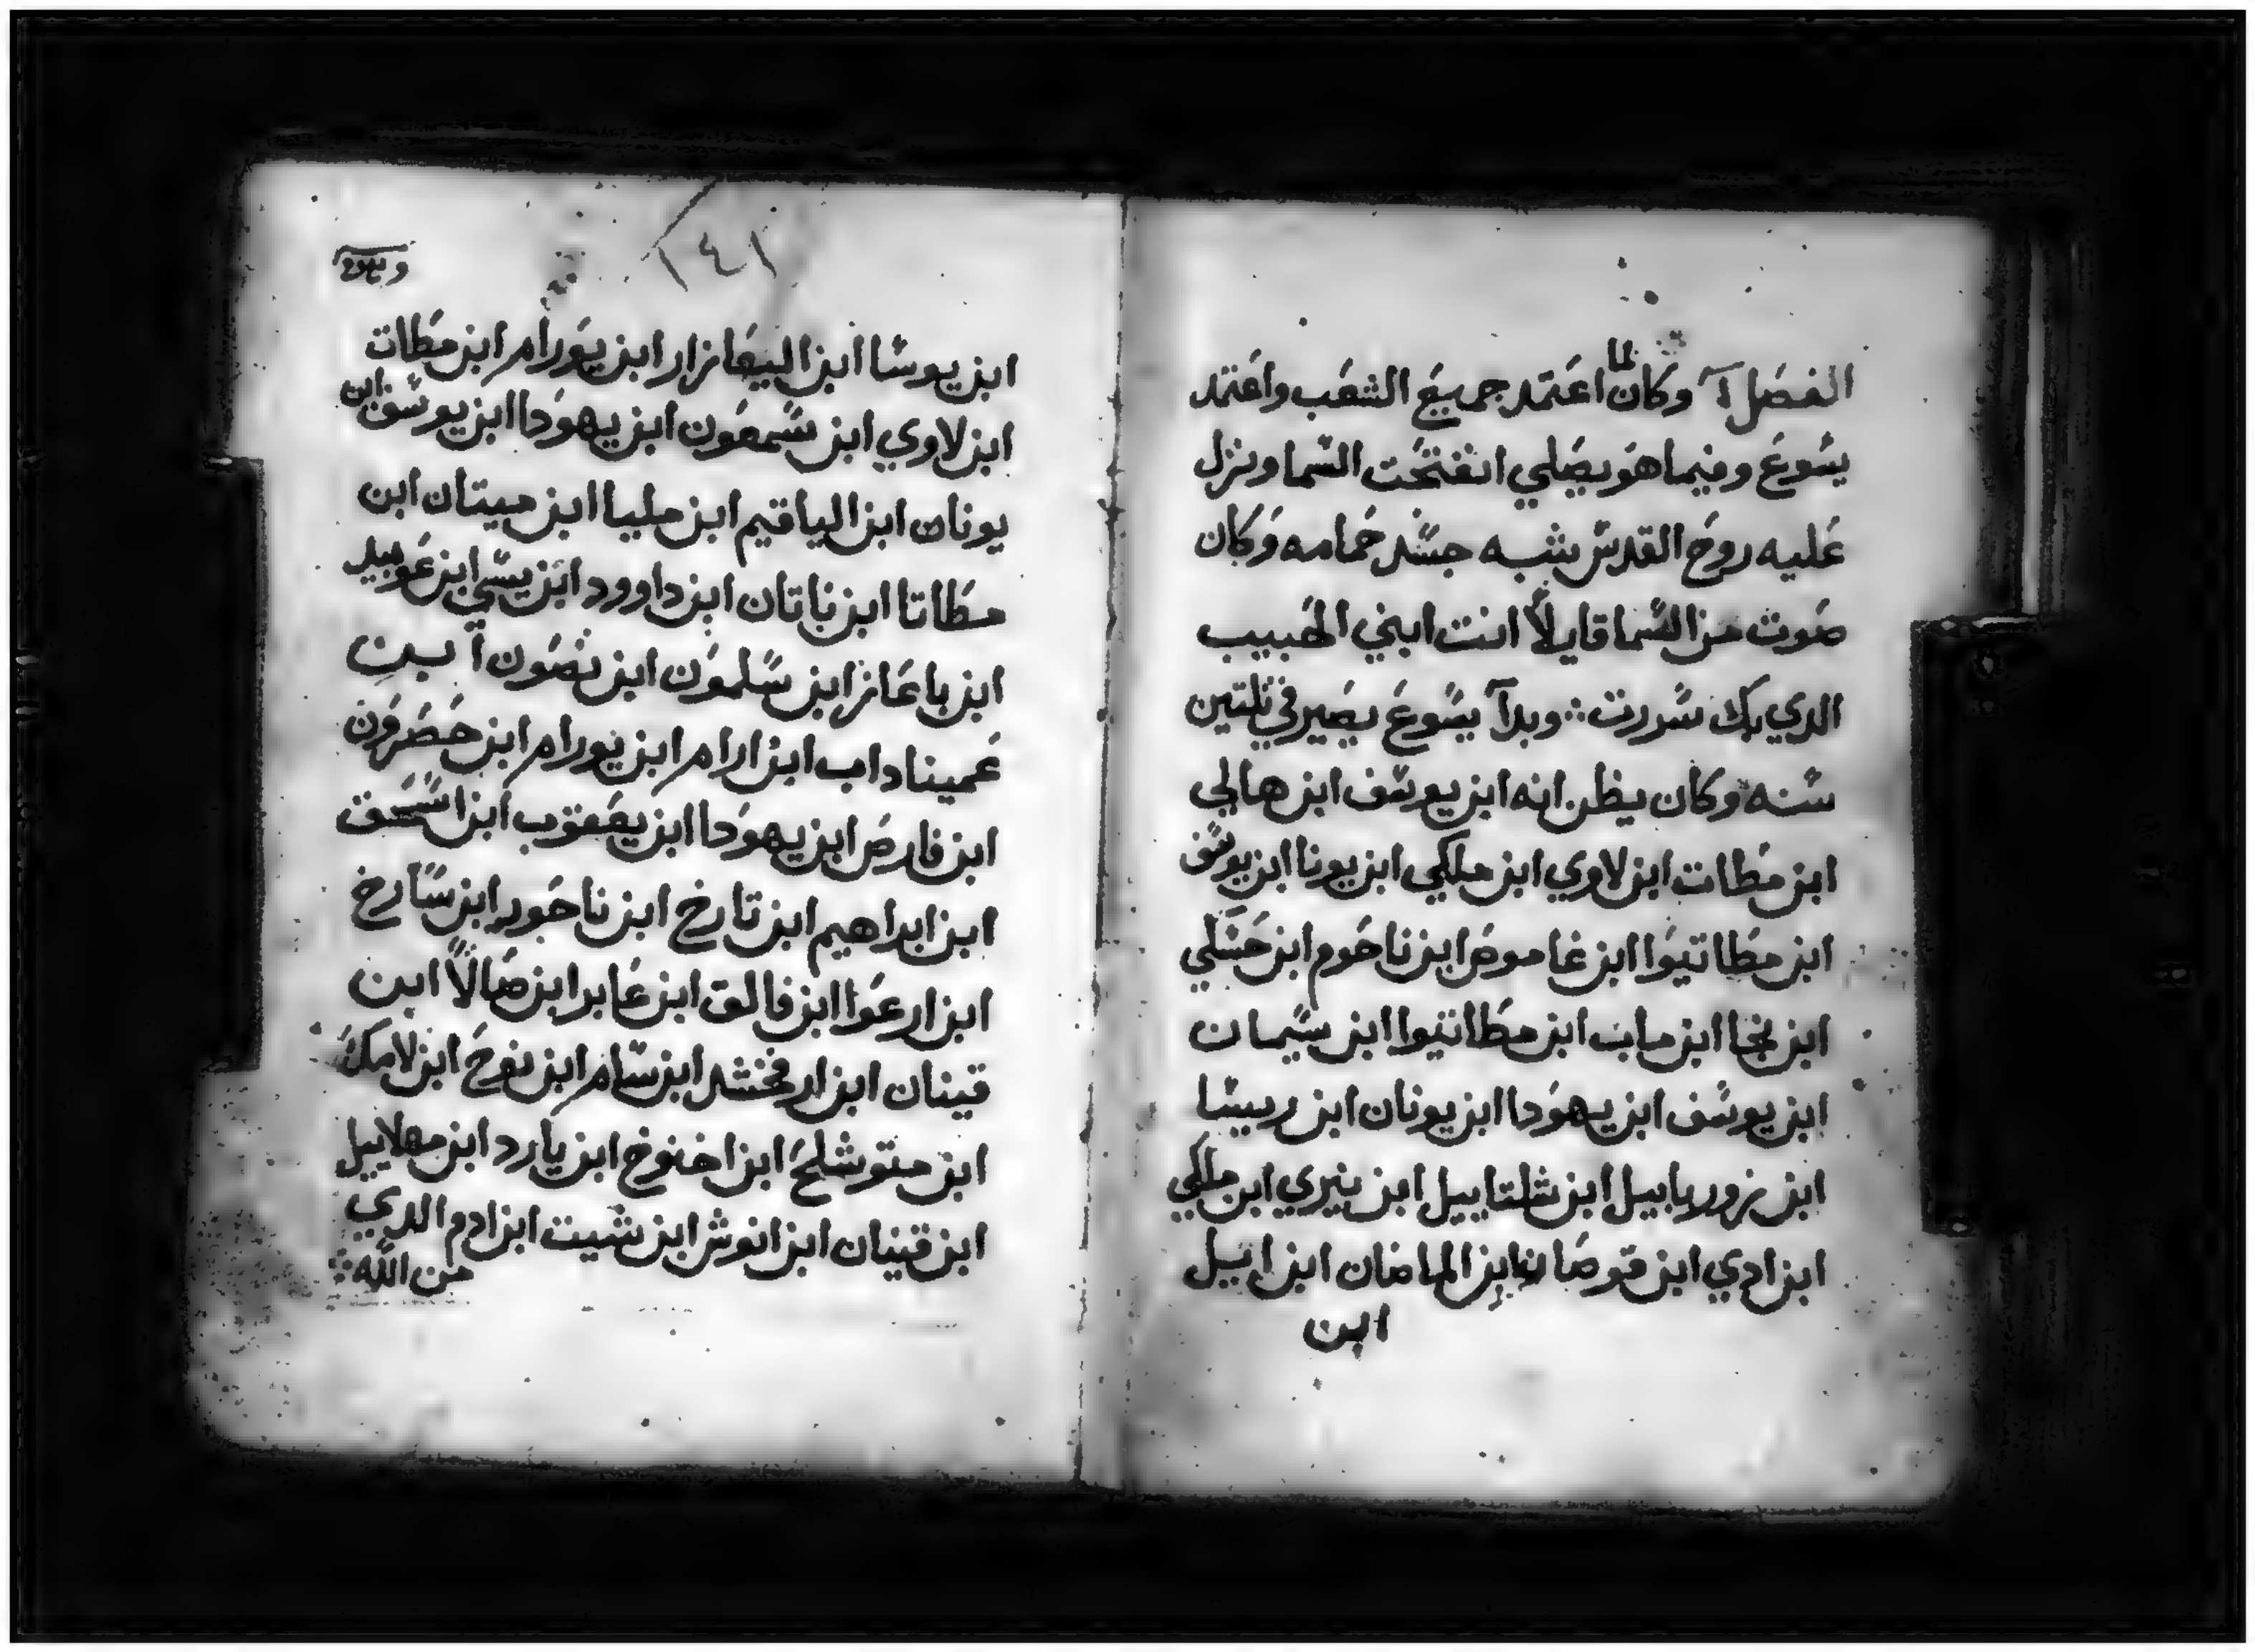 الفصل آ وكان لما اعتمد جميع الشعب واعتمد
يسوع وفيما هو يصلي انفتحت السما ونزل
عليه روح القدس بشبه جسد حمامه وكان
صوت من السما قايلاً انت ابني الحبيب
الدي بك سررت وبدآ يسوع يصير في تلتين
سنه وكان يظن انه ابن يوسف ابن هالي
ابن مطات ابن لاوي ابن ملكي ابن يونا ابن يوسف
ابن مطاتيوا ابن غاموص ابن ناحوم ابن حسلي
ابن نجا ابن ماب ابن مطاتيوا ابن سيمان
ابن يوسف ابن يهودا ابن يونان ابن ريسا
ابن زوربابيل ابن شلتاييل ابن نيري ابن ملكي
ابن ادي ابن قوصان ابن الماضان ابن ايبل
ابن
١٤١
ابن يوسا ابن اليعازار ابن يورام ابن مطات
ابن لاوي ابن شمعون ابن يهودا ابن يوسف ابن
يونان ابن الياقيم ابن مليا ابن ميتان ابن
مطاتا ابن ناتان ابن داوود ابن يسي ابن عوبيد
ابن باعاز ابن سلمون ابن نصون ابن
عميناداب ابن ارام ابن يورام ابن حصرون
ابن فارص ابن يهودا ابن يعقوب ابن اسحق
ابن ابراهيم ابن تارخ ابن ناحور ابن سارخ
ابن ارعوا ابن فالق ابن عابر ابن صالاً ابن
قينان ابن ارفخشد ابن سام ابن نوح ابن لامك
ابن متوشلح ابن اخنوخ ابن يارد ابن مهلاييل
ابن قينان ابن انوش ابن شيت ابن ادم الدي
من الله